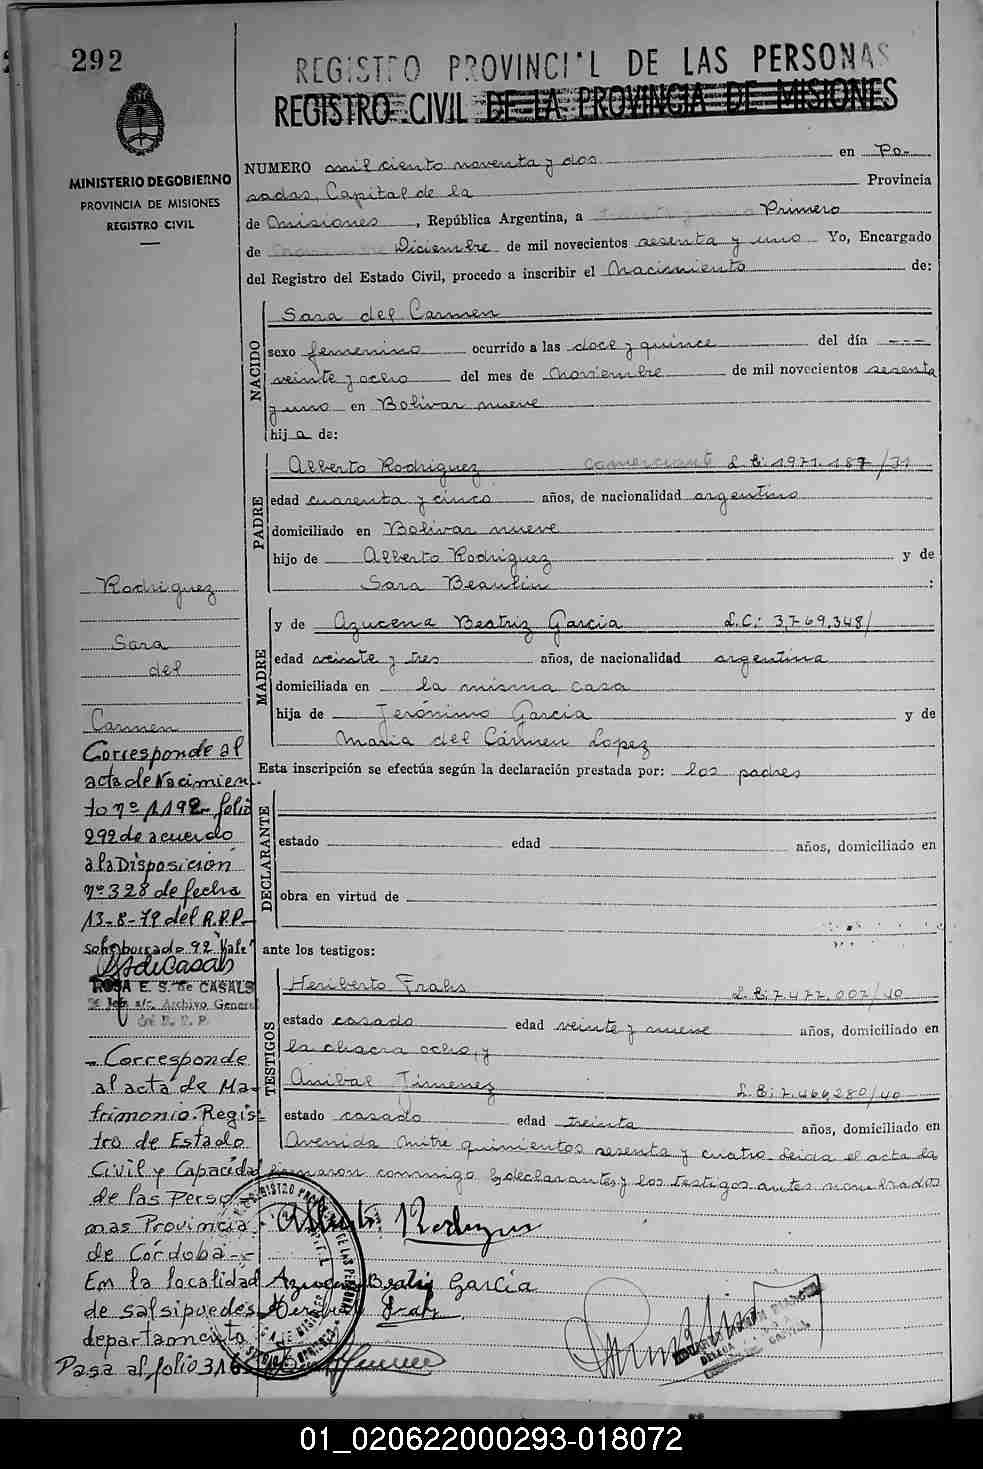 292
REGISTRO PROVINCIAL DE LAS PERSONAS
REGISTRO CIVIL DE LA PROVINCIA DE MISIONES
MINISTERIO DE GOBIERNO
PROVINCIA DE MISIONES
REGISTRO CIVIL
NUMERO mil ciento noventa y dos en Po-
sadas, Capital de la Provincia
de Misiones, República Argentina, a Primero
de Diciembre de mil novecientos sesenta y uno Yo, Encargado
del Registro del Estado Civil, procedo a inscribir el Nacimiento de:
NACIDO
Sara del Carmen
sexo femenino ocurrido a las doce y quince del día ---
veinte y ocho del mes de Noviembre de mil novecientos sesenta
y uno en Bolivar nueve
hija de:
PADRE
Alberto Rodriguez comerciante L.E: 1971.187/31
edad cuarenta y cinco años, de nacionalidad argentino
domiciliado en Bolivar nueve
hijo de Alberto Rodriguez y de
Sara Beaulin :
MADRE
y de Azucena Beatriz Garcia L.C: 3,769,348/
edad veinte y tres años, de nacionalidad argentina
domiciliada en la misma casa
hija de Jerónimo Garcia y de
Maria del Cármen Lopez
Esta inscripción se efectúa según la declaración prestada por: los padres
DECLARANTE
estado edad años, domiciliado en
obra en virtud de
ante los testigos:
TESTIGOS
Heriberto Frahs L.E: 7.477.007/40
estado casado edad veinte y nueve años, domiciliado en
la chacra ocho, y
Anibal Jimenez L.E: 7.469,280/40
estado casado edad treinta años, domiciliado en
Avenida Mitre quinientos sesenta y cuatro. Leida el acta la
firmaron conmigo los declarantes y los testigos antes nombrados
Alberto Rodriguez
Azucena Beatriz García
Rodriguez
Sara
del
Carmen
Corresponde al
acta de Nacimien-
to nº 1192- folio
292 de acuerdo
a la Disposición
nº 328 de fecha
13-8-79 del R.P.P-
sobreborrado 92 "Vale"
ROSA E. S. de CASALS
Jefe a/c. Archivo General
del R. P. P.
- Corresponde
al acta de Ma-
trimonio. Regis-
tro de Estado
Civil y Capacidad
de las Perso
nas Provincia
de Córdoba--
En la localidad
de salsipuedes
departamento
Pasa al folio 316
01_020622000293-018072